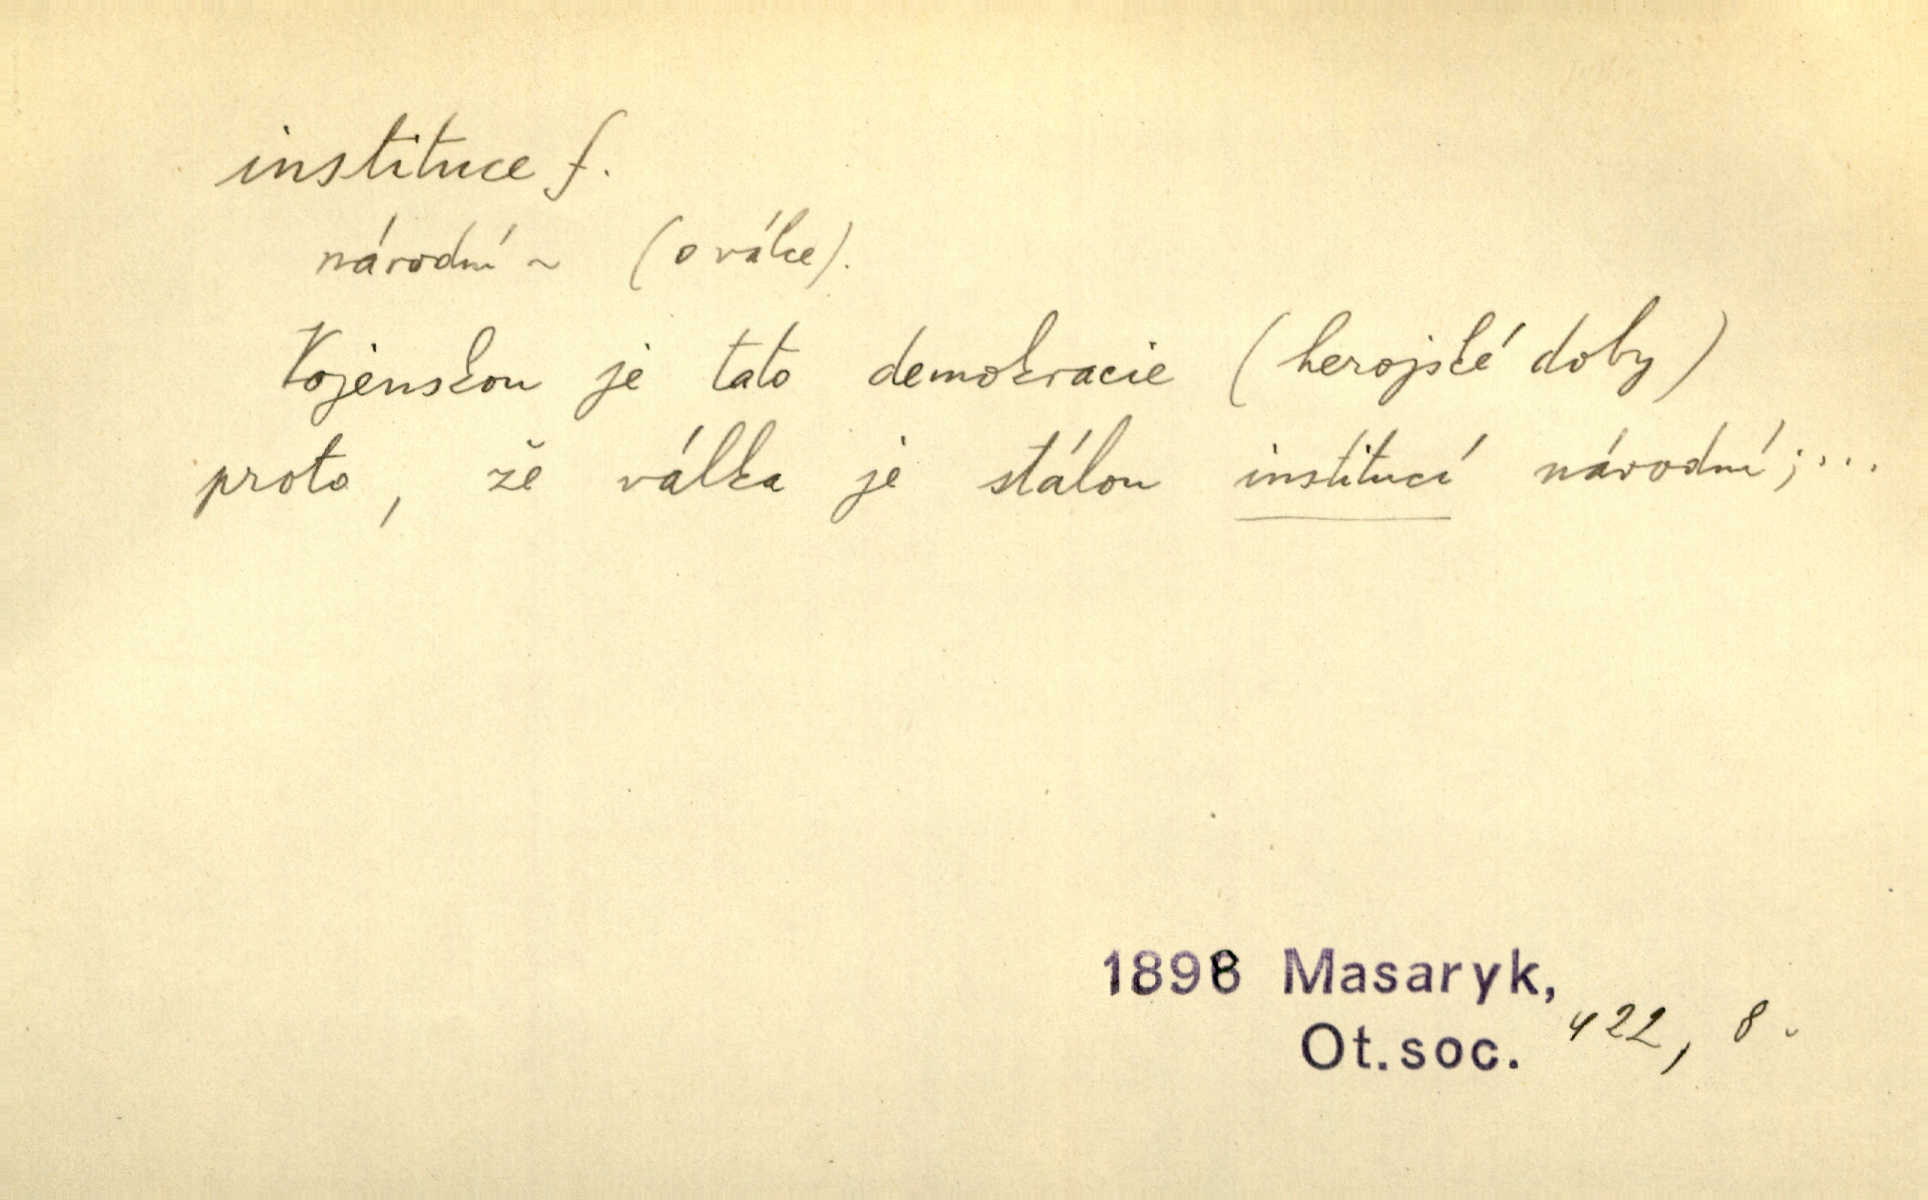 instituce f.
národní ~ (o válce).
Vojenskou je tato demokracie (herojské doby)
proto, že válka je stálou institucí národní; ...
1898 Masaryk,
Ot. soc. 422, 8.